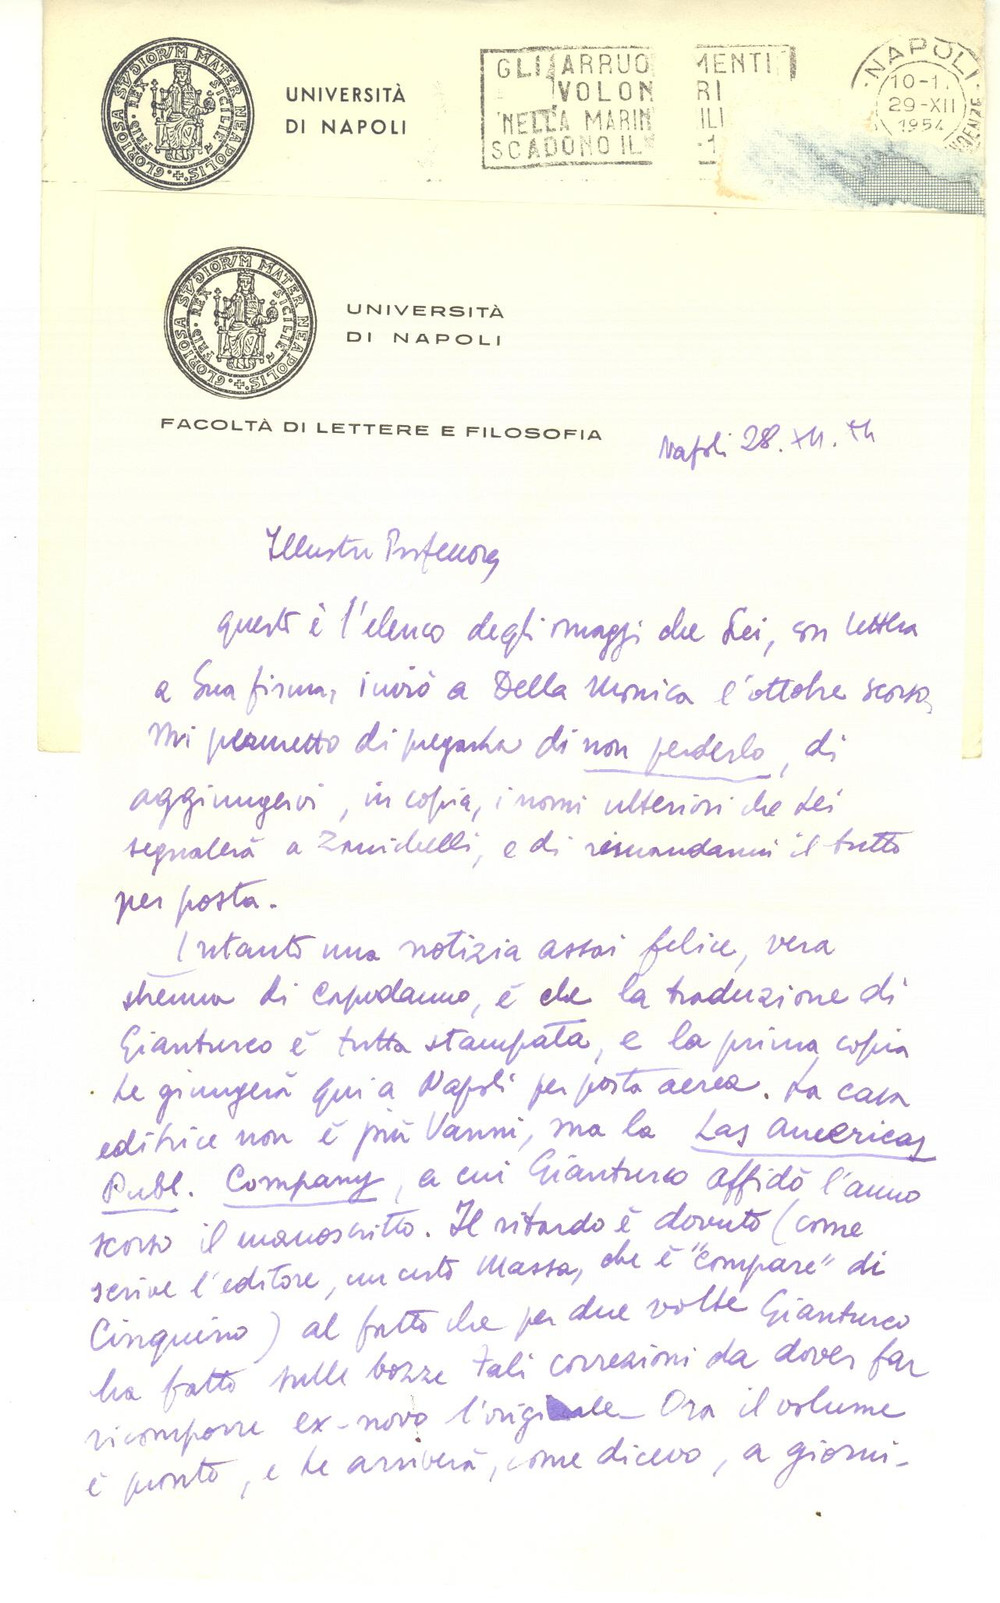 GLORIOSA STVDIORVM MATER NEAPOLIS
FRID · REX SICILIE
UNIVERSITÀ
DI NAPOLI
GLI ARRUO MENTI
VOLON RI
NELLA MARIN ILI
SCADONO IL -1
NAPOLI
10-1
29-XII
1954
GLORIOSA STVDIORVM MATER NEAPOLIS
FRID · REX SICILIE
UNIVERSITÀ
DI NAPOLI
FACOLTÀ DI LETTERE E FILOSOFIA
Napoli 28.XII.54
Illustre Professore,
questo è l'elenco degli omaggi che Lei, con lettera
a Sua firma, inviò a Della Monica l'ottobre scorso.
Mi permetto di pregarLa di non perderlo, di
aggiungervi, in copia, i nomi ulteriori che Lei
segnalerà a Zanichelli, e di rimandarmi il tutto
per posta.
Intanto una notizia assai felice, vera
strenna di Capodanno, è che la traduzione di
Gianturco è tutta stampata, e la prima copia
Le giungerà qui a Napoli per posta aerea. La casa
editrice non è più Vanni, ma la Las Americas
Publ. Company, a cui Gianturco affidò l'anno
scorso il manoscritto. Il ritardo è dovuto (come
scrive l'editore, un certo Massa, che è "compare" di
Cinquino) al fatto che per due volte Gianturco
ha fatto sulle bozze tali correzioni da dover far
ricomporre ex-novo l'originale. Ora il volume
è pronto, e Le arriverà, come dicevo, a giorni.